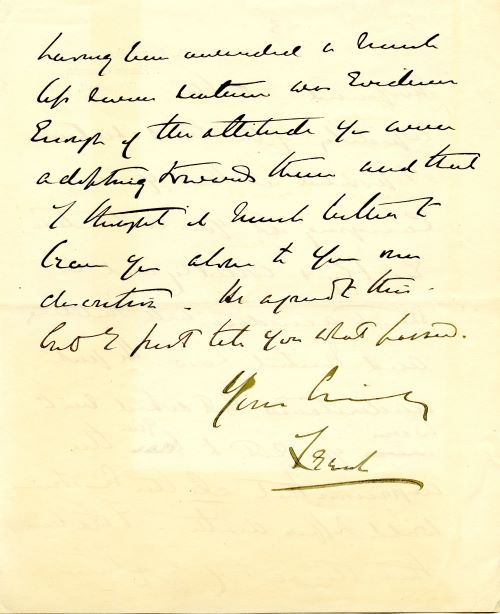 having been awarded a much
less severe sentence was evidence
Enough of the attitude you were
adopting towards them and that
I thought it much better to
leave you alone to your own
discretion. He agreed to this.
but I just tell you what passed.
Yours sincerely
French